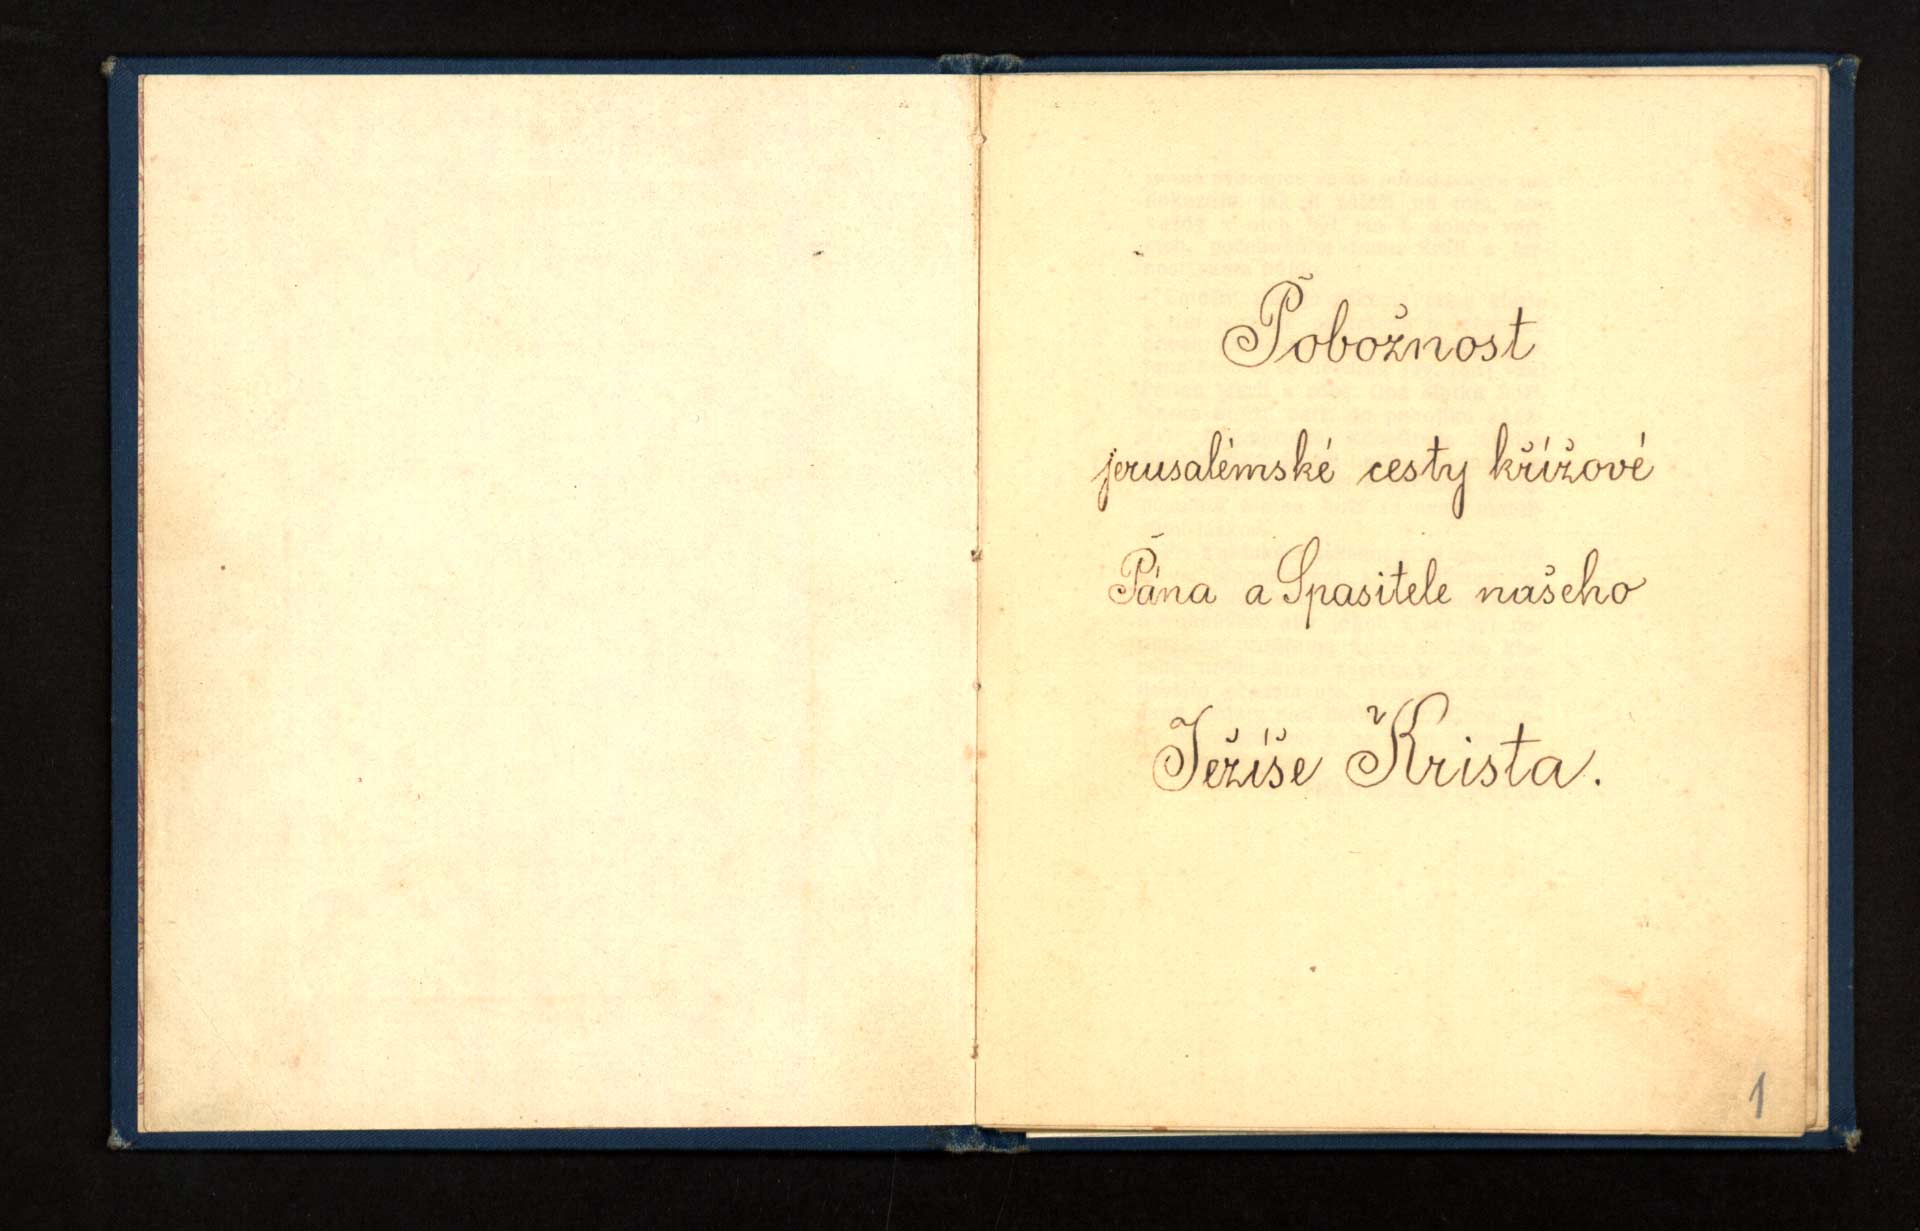 Pobožnost
jerusalémské cesty křížové
Pána a Spasitele našeho
Ježíše Krista.
1